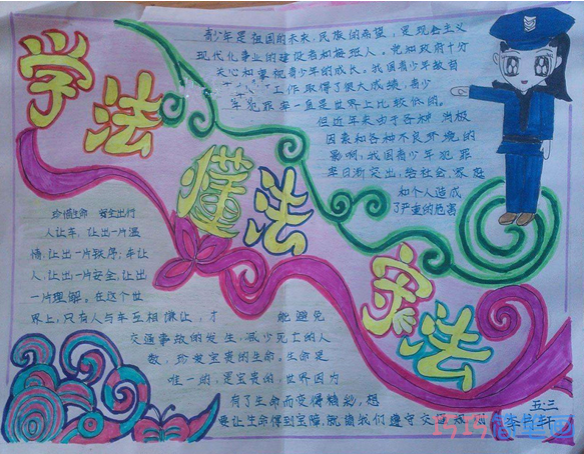 学法
懂法
守法
青少年是祖国的未来,民族的希望,是现代主义
现代化事业的建设者和接班人。党和政府十分
关心和重视青少年的成长。我国青少年教育
工作取得了很大成绩,青少
年犯罪率一直是世界上比较低的。
但近年来由于各种消极
因素和各种不良环境的
影响,我国青少年犯罪
率日渐突出,给社会、家庭
和个人造成
了严重的危害
珍惜生命 安全出行
人让车,让出一片温
情;让出一片秩序;车让
人,让出一片安全,让出
一片理解。在这个世
界上,只有人与车互相谦让,才 能避免
交通事故的发生,减少死亡的人
数,珍爱宝贵的生命,生命是
唯一的,是宝贵的,世界因为
有了生命而变得精彩,想
要让生命得到宝障,就请我们遵守交
五.三
李 轩